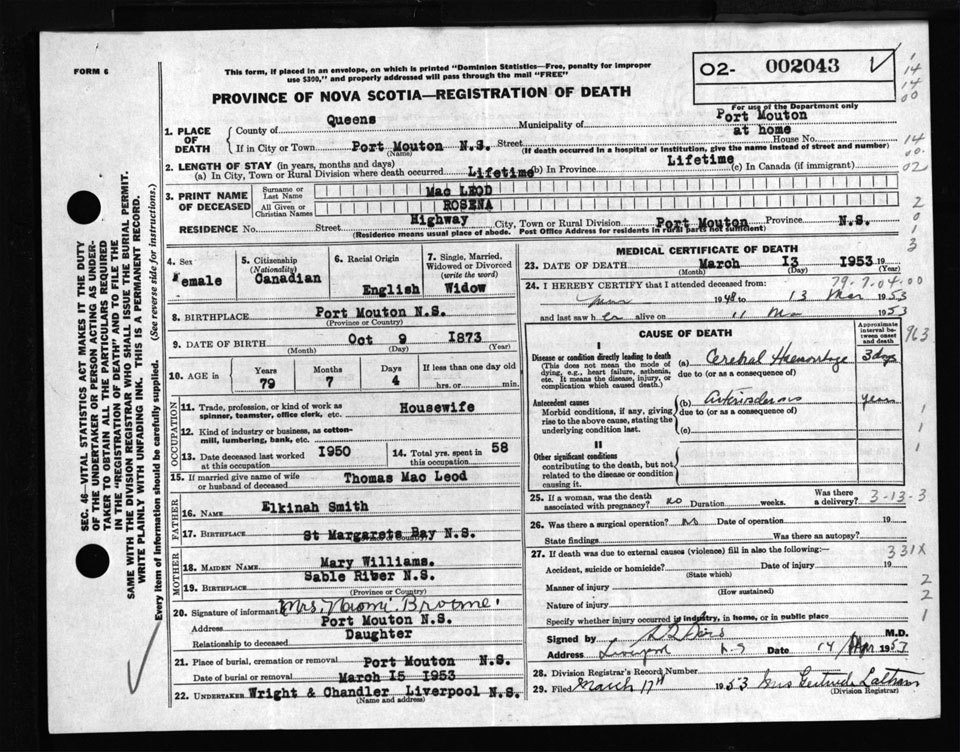 FORM 6
This form, if placed in an envelope, on which is printed "Dominion Statistics—Free, penalty for improper
use $300," and properly addressed will pass through the mail "FREE"
O2- 002043
PROVINCE OF NOVA SCOTIA—REGISTRATION OF DEATH
For use of the Department only
1. PLACE OF DEATH
County of Queens Municipality of Port Mouton
at home
If in City or Town Port Mouton N.S. Street House No.
(Name) (If death occurred in a hospital or institution, give the name instead of street and number)
2. LENGTH OF STAY (in years, months and days)
(a) In City, Town or Rural Division where death occurred Lifetime (b) In Province Lifetime (c) In Canada (if immigrant)
3. PRINT NAME OF DECEASED
Surname or Last Name Mac LEOD
All Given or Christian Names ROSENA
RESIDENCE No. Street Highway City, Town or Rural Division Port Mouton Province N.S.
(Residence means usual place of abode. Post Office Address for residents in rural parts not sufficient)
4. Sex Female
5. Citizenship (Nationality) Canadian
6. Racial Origin English
7. Single, Married, Widowed or Divorced (write the word) Widow
8. BIRTHPLACE Port Mouton N.S.
(Province or Country)
9. DATE OF BIRTH Oct 9 1873
(Month) (Day) (Year)
10. AGE in Years 79 Months 7 Days 4 If less than one day old hrs. or min.
OCCUPATION
11. Trade, profession, or kind of work as spinner, teamster, office clerk, etc. Housewife
12. Kind of industry or business, as cotton-mill, lumbering, bank, etc.
13. Date deceased last worked at this occupation 1950
14. Total yrs. spent in this occupation 58
15. If married give name of wife or husband of deceased Thomas Mac Leod
FATHER
16. NAME Elkinah Smith
17. BIRTHPLACE St Margarets Bay N.S.
MOTHER
18. MAIDEN NAME Mary Williams.
19. BIRTHPLACE Sable River N.S.
(Province or Country)
20. Signature of informant Mrs. Naomi Broome
Address Port Mouton N.S.
Relationship to deceased Daughter
21. Place of burial, cremation or removal Port Mouton N.S.
Date of burial or removal March 15 1953
22. UNDERTAKER Wright & Chandler Liverpool N.S.
(Name and address)
MEDICAL CERTIFICATE OF DEATH
23. DATE OF DEATH March 13 1953
(Month) (Day) (Year)
79-7-04-00
24. I HEREBY CERTIFY that I attended deceased from:
1948 to 13 Mar 1953
and last saw her alive on 11 Ma 1953
CAUSE OF DEATH
Approximate interval between onset and death
I
Disease or condition directly leading to death
(This does not mean the mode of dying, e.g., heart failure, asthenia, etc. It means the disease, injury, or complication which caused death.)
(a) Cerebral Haemorrhage 3 days
due to (or as a consequence of)
Antecedent causes
Morbid conditions, if any, giving rise to the above cause, stating the underlying condition last.
(b) Arteriosclerosis years
due to (or as a consequence of)
(c)
II
Other significant conditions
contributing to the death, but not related to the disease or condition causing it.
25. If a woman, was the death associated with pregnancy? no Duration weeks. Was there a delivery? 3-13-3
26. Was there a surgical operation? no Date of operation 19
State findings Was there an autopsy?
27. If death was due to external causes (violence) fill in also the following:— 331X
Accident, suicide or homicide? Date of injury 19
(State which)
Manner of injury
(How sustained)
Nature of injury
Specify whether injury occurred in industry, in home, or in public place
Signed by M.D.
Address Liverpool N S Date 14 1953
28. Division Registrar's Record Number
29. Filed March 17th 1953 Mrs Gertrude
(Division Registrar)
SEC. 46—VITAL STATISTICS ACT MAKES IT THE DUTY
OF THE UNDERTAKER OR PERSON ACTING AS UNDER-
TAKER TO OBTAIN ALL THE PARTICULARS REQUIRED
IN THE "REGISTRATION OF DEATH" AND TO FILE THE
SAME WITH THE DIVISION REGISTRAR WHO SHALL ISSUE THE BURIAL PERMIT.
WRITE PLAINLY WITH UNFADING INK. THIS IS A PERMANENT RECORD.
Every item of information should be carefully supplied. (See reverse side for instructions.)
14
14
00
14
00
02
2
0
1
3
963
1
1
2
2
1